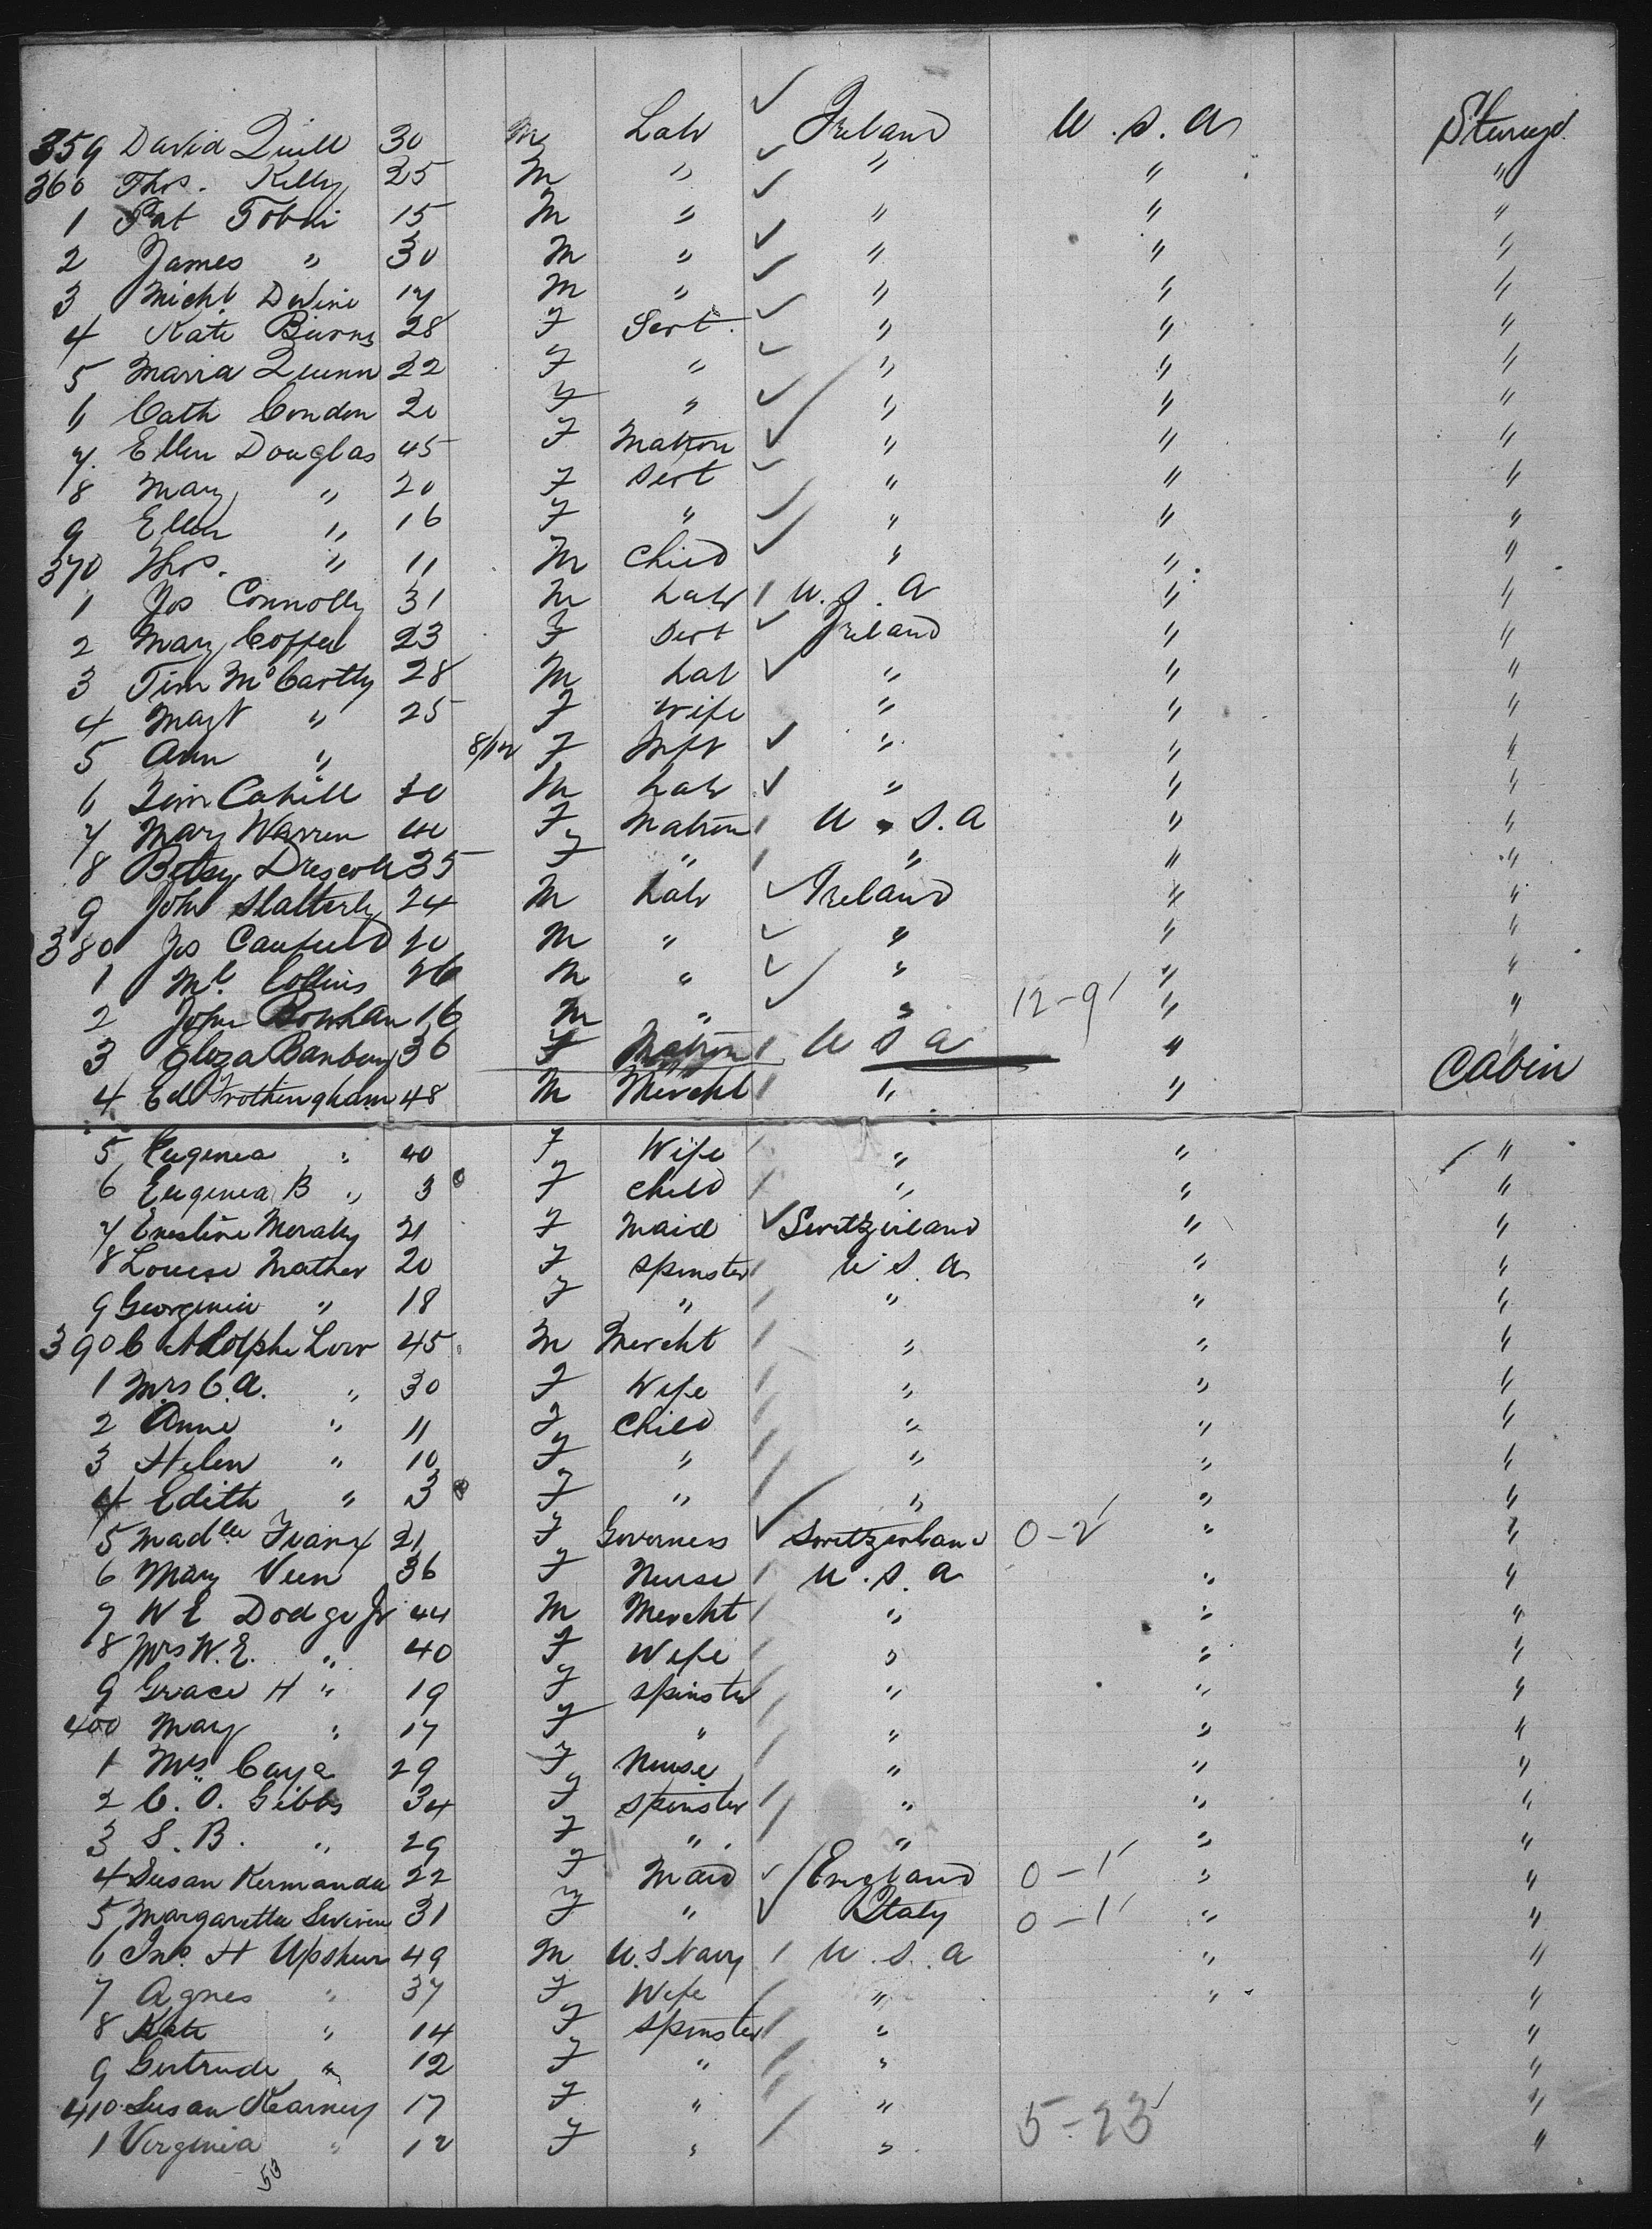 359 David Quill 30 M Labr Ireland U.S.A Steerage
360 Thos. Kelly 25 M " " " "
1 Pat Tobin 15 M " " " "
2 James " 30 M " " " "
3 Michl Devine 17 M " " " "
4 Kate Burns 28 F Servt. " " "
5 Maria Quinn 22 F " " " "
6 Cath Condon 20 F " " " "
7 Ellen Douglas 45 F Matron " " "
8 Mary " 20 F Servt " " "
9 Ellen " 16 F " " " "
370 Thos. " 11 M Child " " "
1 Jos Connolly 31 M Labr U.S.A " "
2 Mary Coffee 23 F Servt Ireland " "
3 Tim McCartly 28 M Lab " " "
4 Margt " 25 F Wife " " "
5 Ann " 8/12 F Inft " " "
6 Tim Cahill 20 M Labr " " "
7 Mary Warren 40 F Matron U.S.A " "
8 Betsy Driscoll 35 F " " " "
9 John Slatterly 24 M Labr Ireland " "
380 Jos Caufield 20 M " " " "
1 Ml. Collins 26 M " " " "
2 John 16 M " " 12-9 " "
3 Eliza Banbury 36 F Matron U S A "
4 Ed Frothingham 48 M Mercht " " Cabin
5 Eugenia " 40 F Wife " " "
6 Eugenia B " 3 F Child " " "
7 Ernestine 21 F Maid Switzerland " "
8 Louise Mather 20 F Spinster U.S.A " "
9 Georgenia " 18 F " " " "
390 C Adolphe Low 45 M Mercht " " "
1 Mrs C.A. " 30 F Wife " " "
2 Anne " 11 F Child " " "
3 Helen " 10 F " " " "
4 Edith " 3 F " " " "
5 Madlle 21 F Governess Switzerland 0-2 " "
6 Mary 36 F Nurse U.S.A " "
7 W E Dodge Jr 44 M Mercht " " "
8 Mrs W.E. " 40 F Wife " " "
9 Grace H " 19 F Spinster " " "
400 Mary " 17 F " " " "
1 Mrs 29 F Nurse " " "
2 C.O. Gibbs 34 F Spinster " " "
3 S.B. " 29 F " " " "
4 Susan 22 F Maid England 0-1 " "
5 Margaretta 31 F " Italy 0-1 " "
6 Jno. H Upshur 49 M U.S Navy U.S.A " "
7 Agnes " 37 F Wife " " "
8 Kate " 14 F Spinster " "
9 Gertrude " 12 F " " "
410 Susan Kearney 17 F " " "
1 Virginia " 12 F " " 5-23 "
53